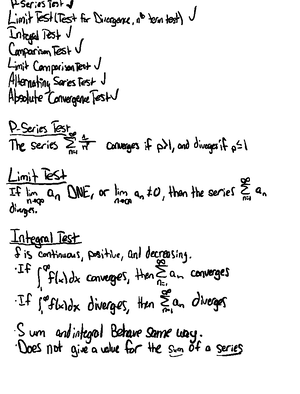 P-Series Test ✓
Limit Test (Test for Divergence, nth term test) ✓
Integral Test ✓
Comparison Test ✓
Limit Comparison Test ✓
Alternating Series Test ✓
Absolute Convergence Test ✓
P-Series Test
The series ∑_{n=1}^{∞} 1/n^p converges if p>1, and diverges if p≤1
Limit Test
If lim_{n→∞} a_n DNE, or lim_{n→∞} a_n ≠ 0, then the series ∑_{n=1}^{∞} a_n
diverges.
Integral Test
f is continuous, positive, and decreasing.
·If ∫_1^∞ f(x)dx converges, then ∑_{n=1}^{∞} a_n converges
·If ∫_1^∞ f(x)dx diverges, then ∑_{n=1}^{∞} a_n diverges
·Sum and integral Behave same way.
·Does not give a value for the sum of a series